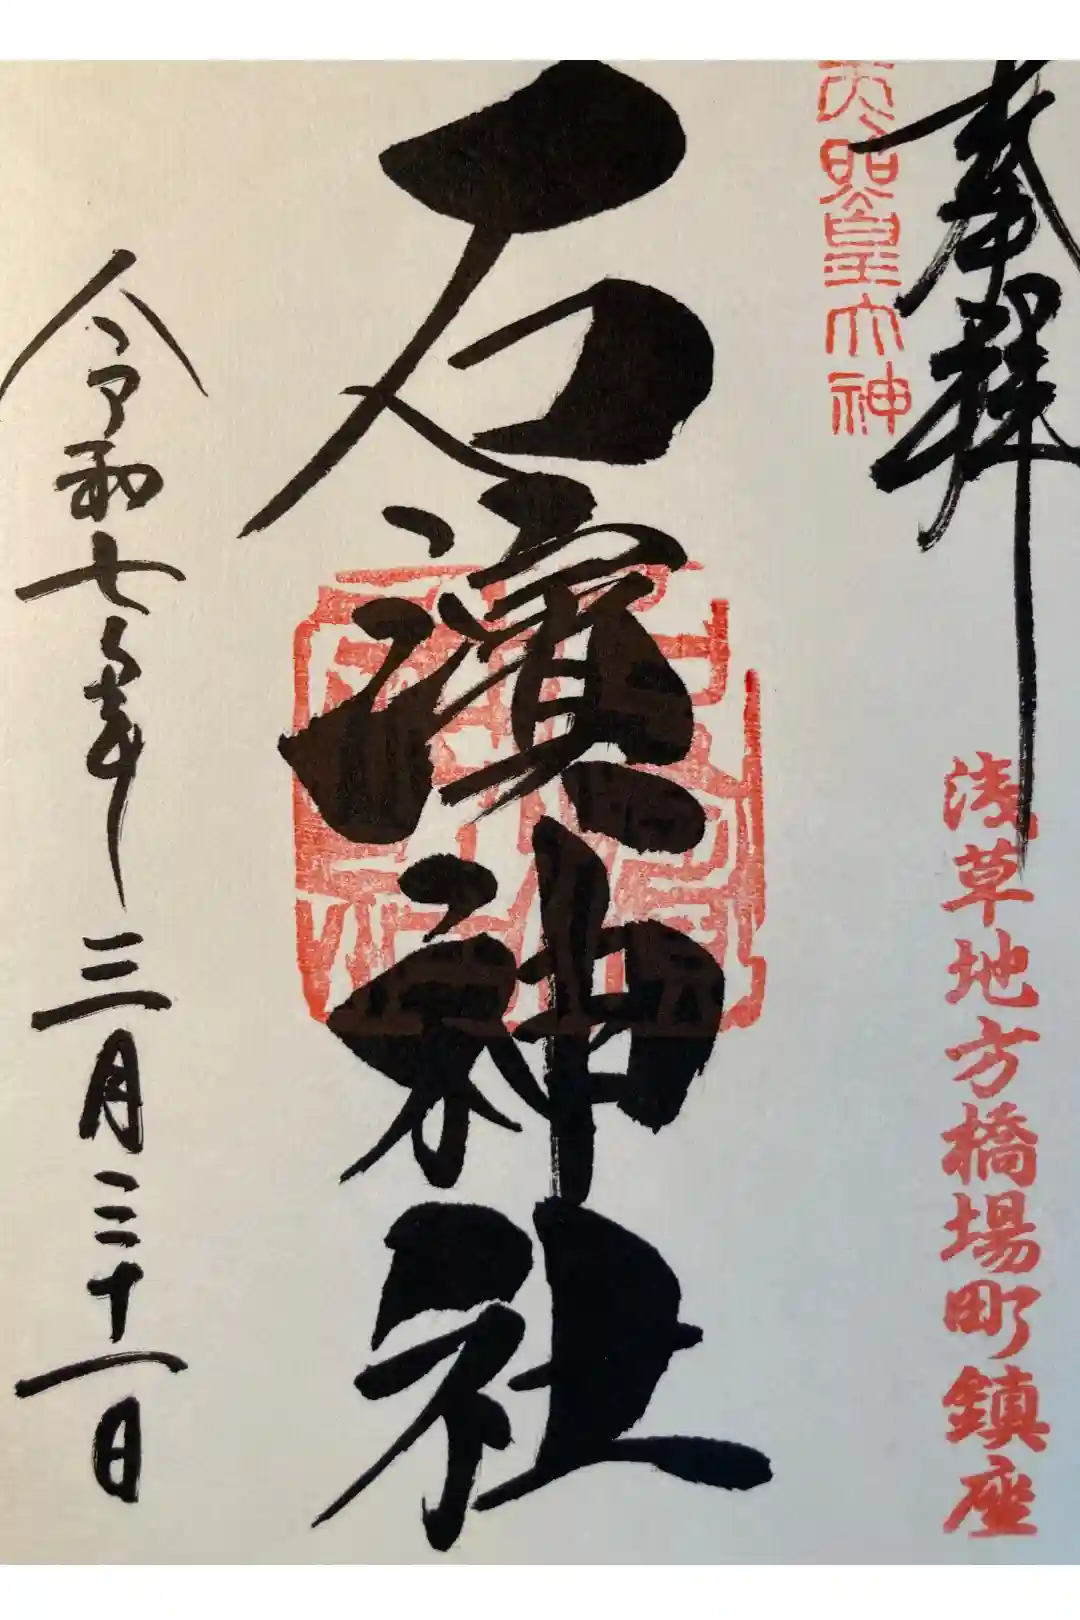 奉拝
天照皇大神
浅草地方橋場町鎮座
石濱神社
令和七年三月二十一日